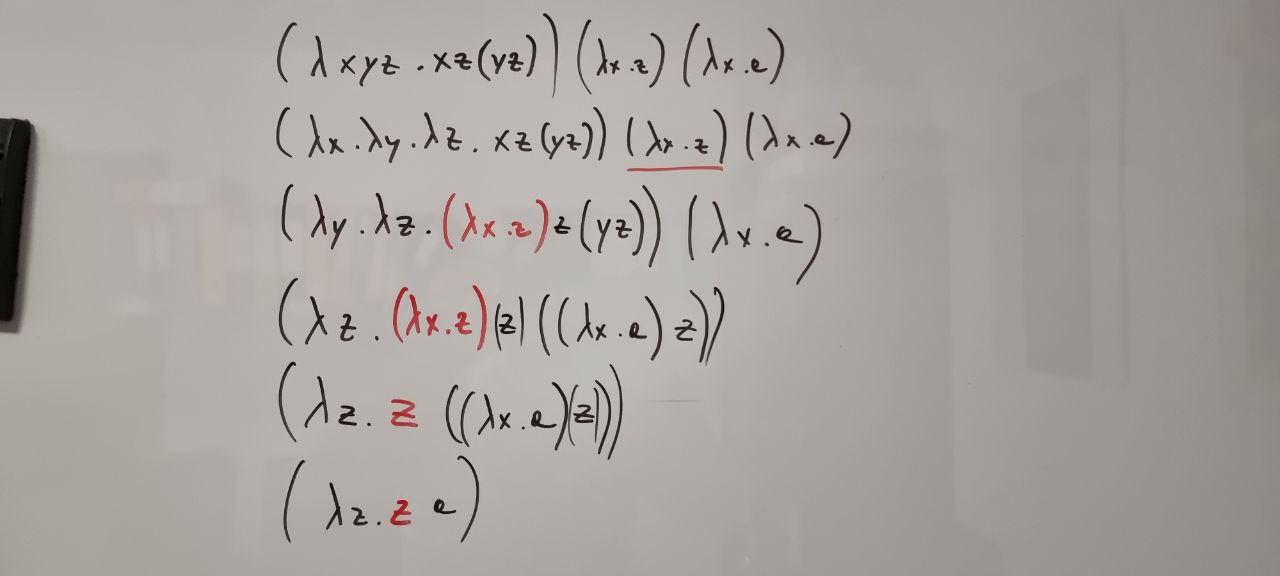 (λxyz.xz(yz))(λx.z)(λx.e)
(λx.λy.λz.xz(yz))(λx.z)(λx.e)
(λy.λz.(λx.z)z(yz))(λx.e)
(λz.(λx.z)(z)((λx.e)z))
(λz.z((λx.e)(z)))
(λz.z e)